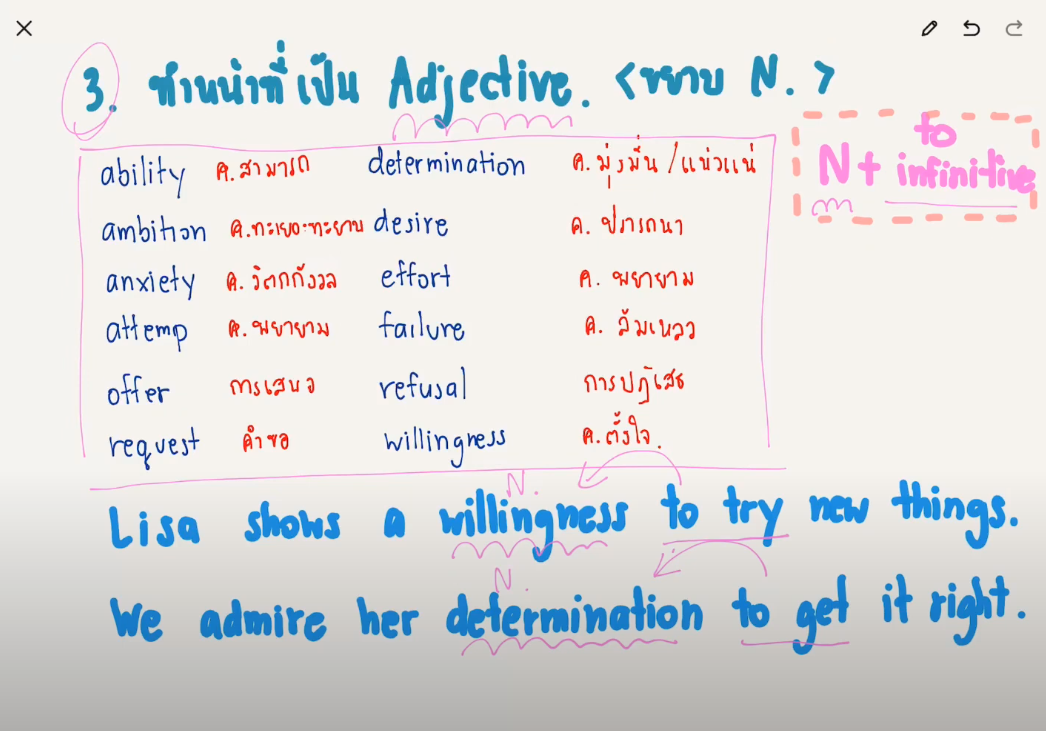 3. ทำหน้าที่เป็น Adjective. <ขยาย N. >
N + to infinitive
ability ค.สามารถ determination ค.มุ่งมั่น / แน่วแน่
ambition ค.ทะเยอะทะยาน desire ค. ปรารถนา
anxiety ค. วิตกกังวล effort ค. พยายาม
attemp ค. พยายาม failure ค. ล้มเหลว
offer การเสนอ refusal การปฏิเสธ
request คำขอ willingness ค. ตั้งใจ.
N.
Lisa shows a willingness to try new things.
N.
We admire her determination to get it right.